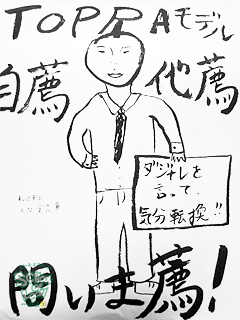 TOPPAモデル
自薦 他薦
ダジャレを
言って、
気分転換!!
問いま薦!